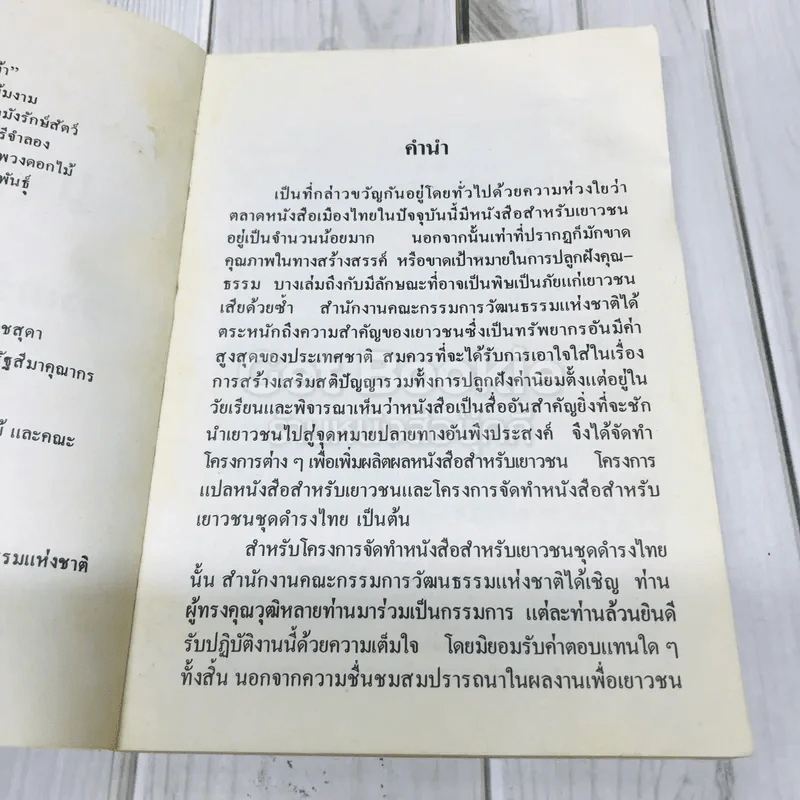 ล้า”
้มงาม
มังรักษ์สัตว์
รีจำลอง
พวงดอกไม้
พันธุ์
ชสุดา
รัฐสีมาคุณากร
้ และคณะ
รรมแห่งชาติ
คำนำ
เป็นที่กล่าวขวัญกันอยู่โดยทั่วไปด้วยความห่วงใยว่า
ตลาดหนังสือเมืองไทยในปัจจุบันนี้มีหนังสือสำหรับเยาวชน
อยู่เป็นจำนวนน้อยมาก นอกจากนั้นเท่าที่ปรากฏก็มักขาด
คุณภาพในทางสร้างสรรค์ หรือขาดเป้าหมายในการปลูกฝังคุณ–
ธรรม บางเล่มถึงกับมีลักษณะที่อาจเป็นพิษเป็นภัยแก่เยาวชน
เสียด้วยซ้ำ สำนักงานคณะกรรมการวัฒนธรรมแห่งชาติได้
ตระหนักถึงความสำคัญของเยาวชนซึ่งเป็นทรัพยากรอันมีค่า
สูงสุดของประเทศชาติ สมควรที่จะได้รับการเอาใจใส่ในเรื่อง
การสร้างเสริมสติปัญญารวมทั้งการปลูกฝังค่านิยมตั้งแต่อยู่ใน
วัยเรียนและพิจารณาเห็นว่าหนังสือเป็นสื่ออันสำคัญยิ่งที่จะชัก
นำเยาวชนไปสู่จุดหมายปลายทางอันพึงประสงค์ จึงได้จัดทำ
โครงการต่าง ๆ เพื่อเพิ่มผลิตผลหนังสือสำหรับเยาวชน โครงการ
แปลหนังสือสำหรับเยาวชนและโครงการจัดทำหนังสือสำหรับ
เยาวชนชุดดำรงไทย เป็นต้น
สำหรับโครงการจัดทำหนังสือสำหรับเยาวชนชุดดำรงไทย
นั้น สำนักงานคณะกรรมการวัฒนธรรมแห่งชาติได้เชิญ ท่าน
ผู้ทรงคุณวุฒิหลายท่านมาร่วมเป็นกรรมการ แต่ละท่านล้วนยินดี
รับปฏิบัติงานนี้ด้วยความเต็มใจ โดยมิยอมรับค่าตอบแทนใด ๆ
ทั้งสิ้น นอกจากความชื่นชมสมปรารถนาในผลงานเพื่อเยาวชน